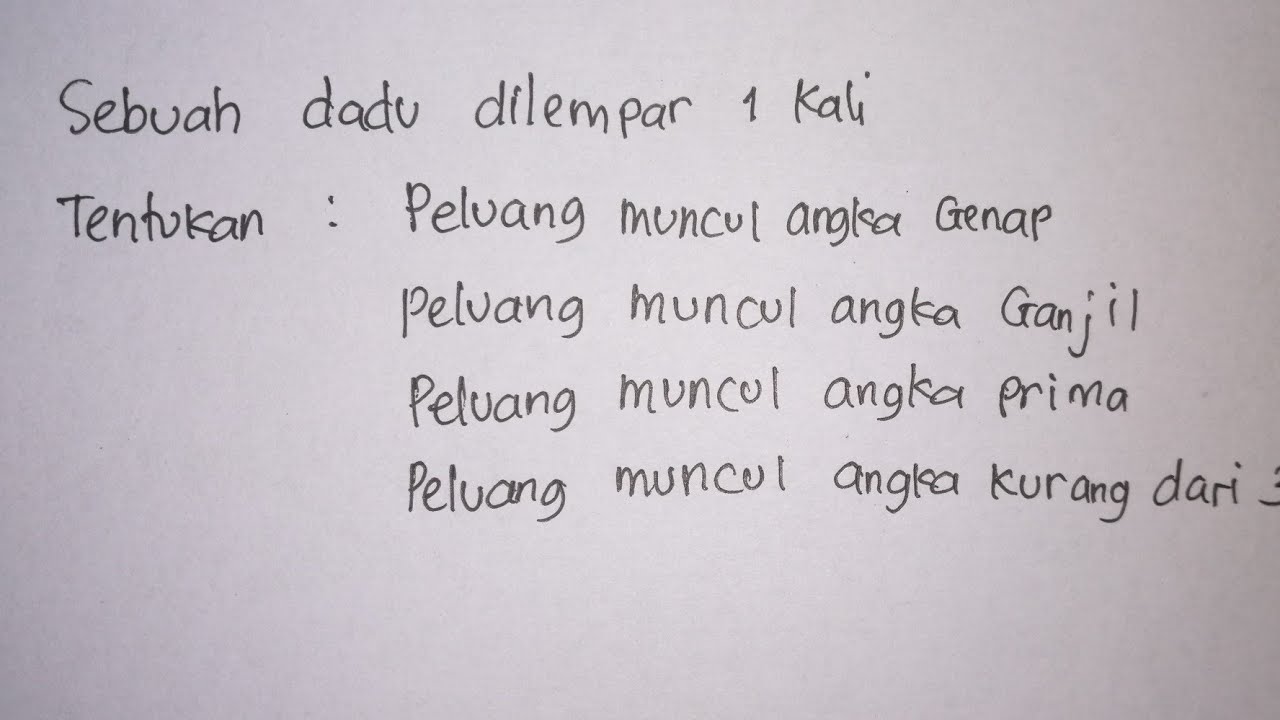 Sebuah dadu dilempar 1 Kali
Tentukan : Peluang muncul angka Genap
Peluang muncul angka Ganjil
Peluang muncul angka prima
Peluang muncul angka kurang dari 3